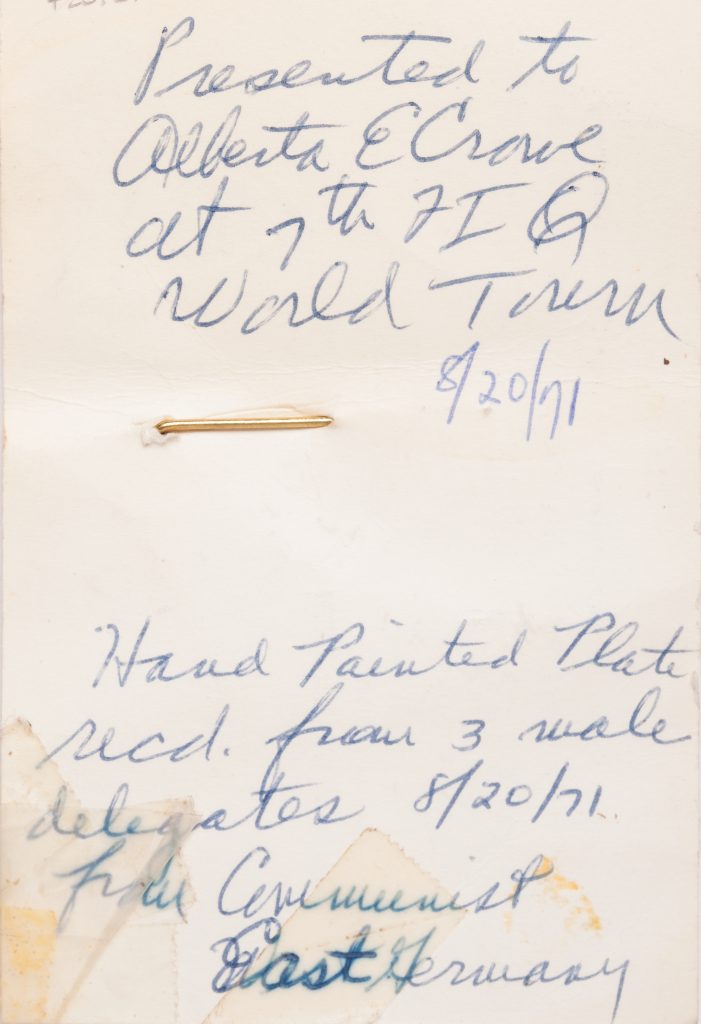 Presented to
Alberta E Crowe
at 7th FIQ
World Tourn
8/20/71
Hand Painted Plate
recd. from 3 male
delegates 8/20/71
from Communist
East Germany